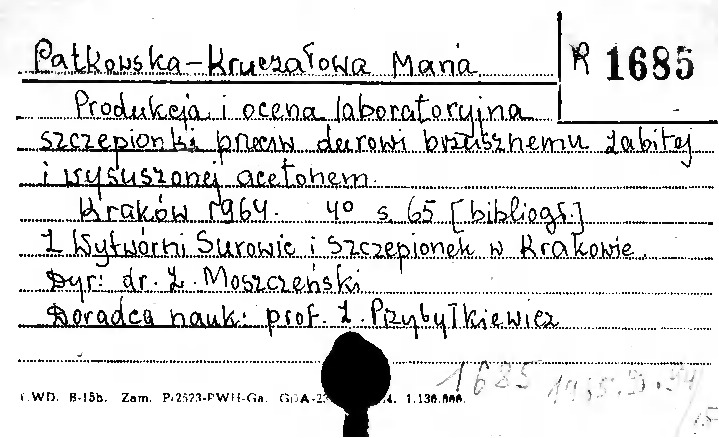 Patkowska-Kruczałowa Maria R 1685
Produkcja i ocena laboratoryjna
szczepionki przeciw durowi brzusznemu zabitej
i wysuszonej acetonem.
Kraków 1964. 4° s. 65 [bibliogr.]
Z Wytwórni Surowic i Szczepionek w Krakowie.
Dyr: dr. Z. Moszczeński
Doradca nauk: prof. Z. Przybyłkiewicz
1685
WD. B-15b. Zam. P/2523-PWH-Ga. GDA-2 4. 1.130.000.